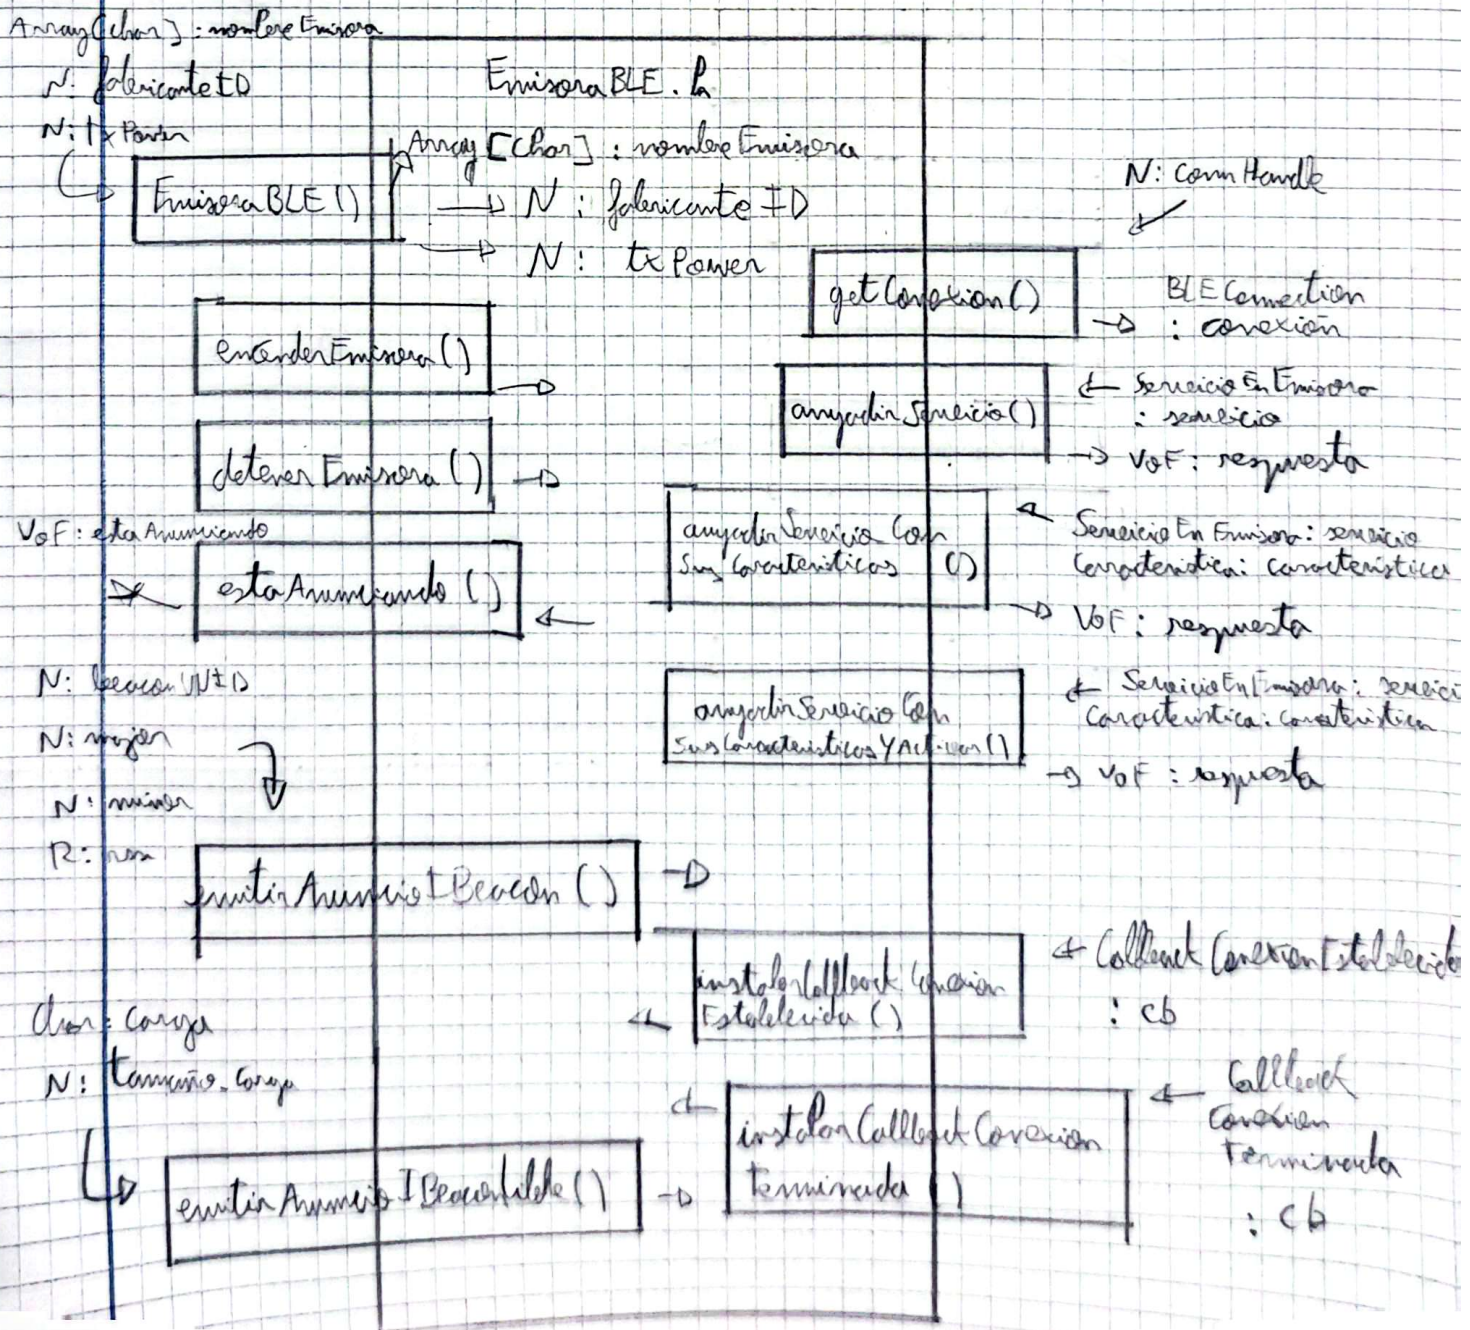 Array[char] : nombreEmisora
N: fabricanteID
N: txPower
EmisoraBLE.h
EmisoraBLE()
Array[char] : nombreEmisora
N : fabricanteID
N : txPower
N: connHandle
getConexion()
BLEConnection
: conexión
encenderEmisora()
anyadirServicio()
ServicioEnEmisora
: servicio
VoF: respuesta
detenerEmisora()
VoF: estaAnunciando
estaAnunciando()
anyadirServicioCon
SusCaracteristicas ()
ServicioEnEmisora: servicio
Caracteristica: característica
VoF: respuesta
N: beaconUUID
N: major
N: minor
R: rssi
anyadirServicioCon
SusCaracteristicasYActivar()
ServicioEnEmisora: servici
Característica: caracteristica
VoF : respuesta
emitirAnuncioIBeacon()
instalarCallbackConexion
Establecida()
CallbackConexionEstablecida
: cb
Char: carga
N: tamaño_carga
emitirAnuncioIBeaconLibre()
instalarCallbackConexion
Terminada()
Callback
Conexion
Terminada
: cb